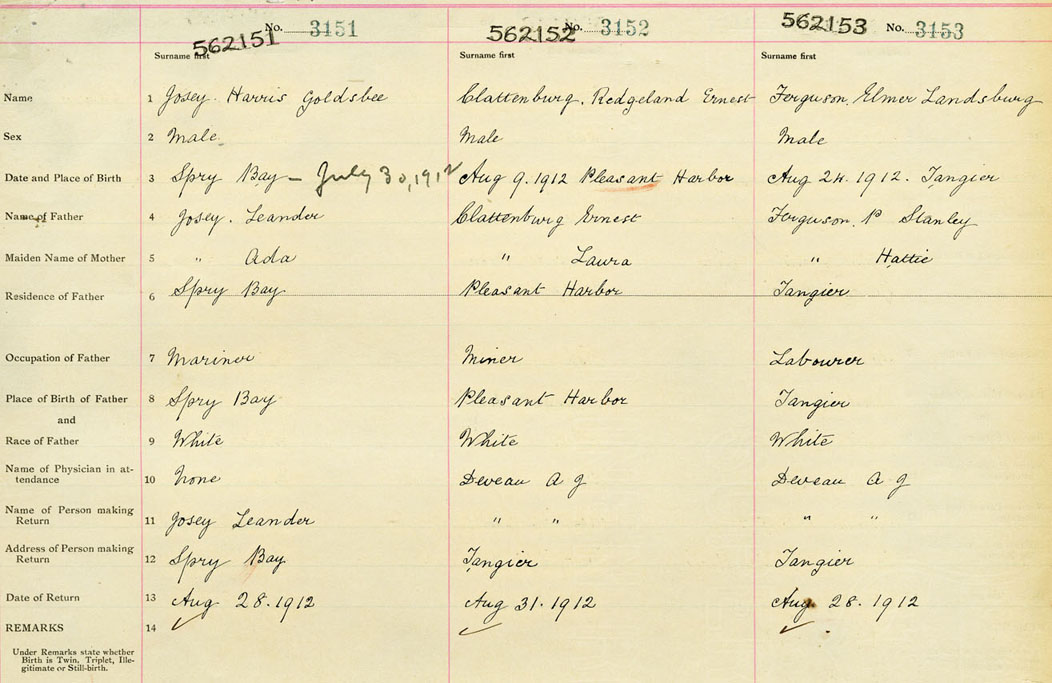 562151 No. 3151 562152 No. 3152 562153 No. 3153
Surname first Surname first Surname first
Name 1 Josey. Harris Goldsbee Clattenburg. Redgeland Ernest Ferguson. Elmer Landsburg
Sex 2 Male Male Male
Date and Place of Birth 3 Spry Bay – July 30, 1912 Aug 9. 1912 Pleasant Harbor Aug 24. 1912. Tangier
Name of Father 4 Josey. Leander Clattenburg Ernest Ferguson. P Stanley
Maiden Name of Mother 5 " Ada " Laura " Hattie
Residence of Father 6 Spry Bay Pleasant Harbor Tangier
Occupation of Father 7 Mariner Miner Labourer
Place of Birth of Father 8 Spry Bay Pleasant Harbor Tangier
and
Race of Father 9 White White White
Name of Physician in at-
tendance 10 None Deveau A J Deveau A J
Name of Person making
Return 11 Josey Leander " " " "
Address of Person making
Return 12 Spry Bay Tangier Tangier
Date of Return 13 Aug 28. 1912 Aug 31. 1912 Aug 28. 1912
REMARKS 14
Under Remarks state whether
Birth is Twin, Triplet, Ille-
gitimate or Still-birth.